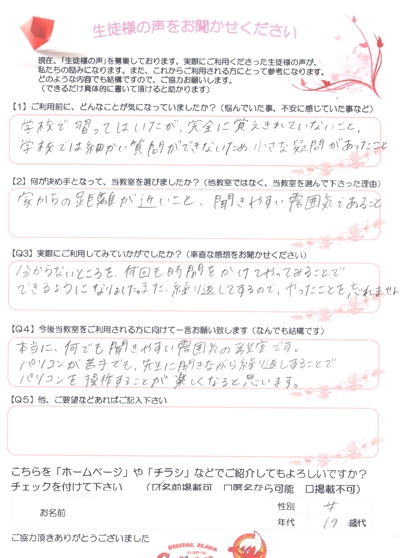 生徒様の声をお聞かせください
現在、「生徒様の声」を募集しております。実際にご利用くださった生徒様の声が、
私たちの励みになります。また、これからご利用される方にとって参考になります。
どのような内容でも結構ですので、ご協力お願いします。
（できるだけ具体的に書いて頂けると助かります）
【1】ご利用前に、どんなことが気になっていましたか？（悩んでいた事、不安に感じていた事など）
学校で習ってはいたが、完全に覚えきれていないこと。
学校では細かい質問ができないため小さな疑問があったこと
【2】何が決め手となって、当教室を選びましたか？（他教室ではなく、当教室を選んで下さった理由）
家からの距離が近いこと、聞きやすい雰囲気であること
【Q3】実際にご利用してみていかがでしたか？（率直な感想をお聞かせください）
分からないところを、何回も時間をかけてやってみることで
できるようになりました。また、繰り返しするので、やったことを忘れません
【Q4】今後当教室をご利用される方に向けて一言お願い致します（なんでも結構です）
本当に、何でも聞きやすい雰囲気の教室です。
パソコンが苦手でも、先生に聞きながら繰り返しすることで
パソコンを操作することが楽しくなると思います。
【Q5】他、ご要望などあればご記入下さい
こちらを「ホームページ」や「チラシ」などでご紹介してもよろしいですか？
チェックを付けて下さい （☑名前掲載可 □匿名なら可能 □掲載不可）
お名前 性別 女
年代 19 歳代
ご協力頂きありがとうございました
DIGITAL PLAZA